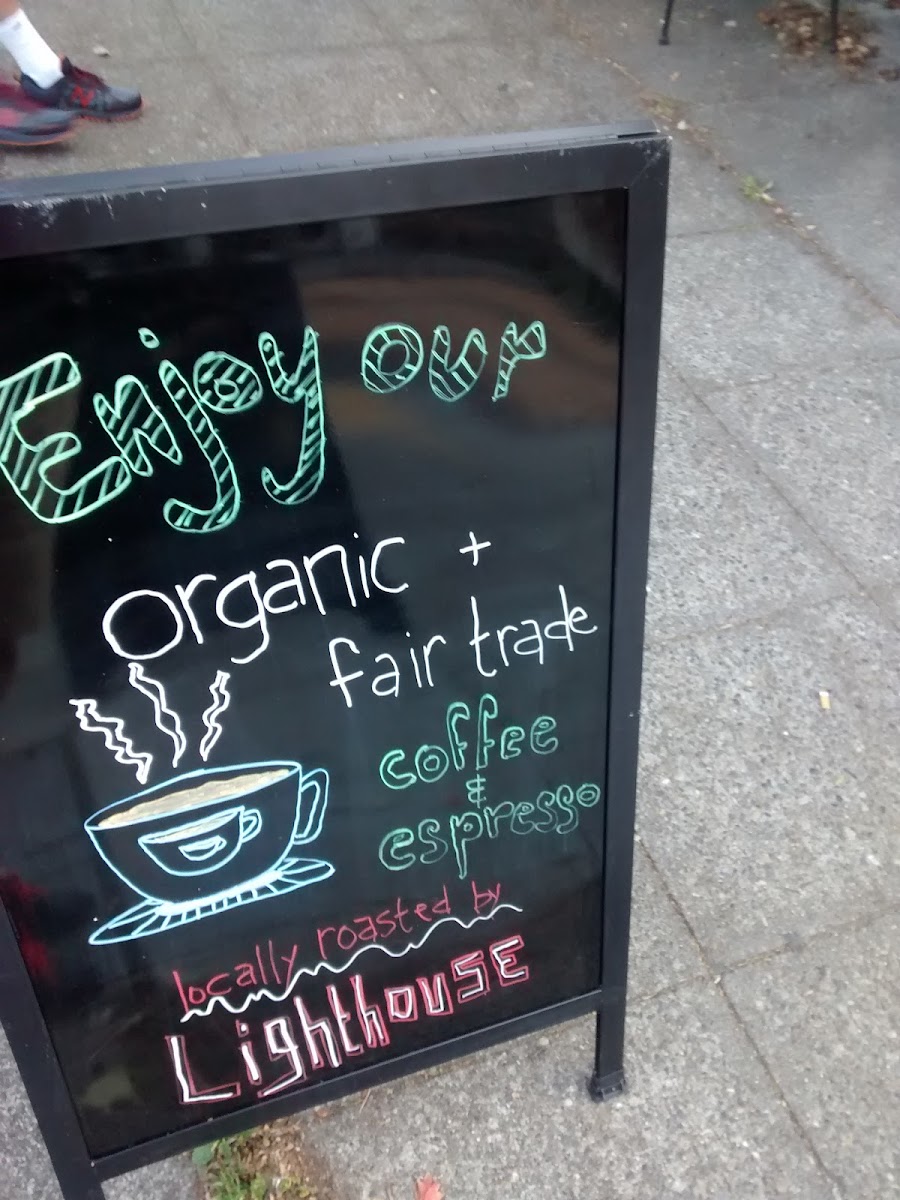 Enjoy our
organic +
fair trade
coffee
&
espresso
locally roasted by
Lighthouse